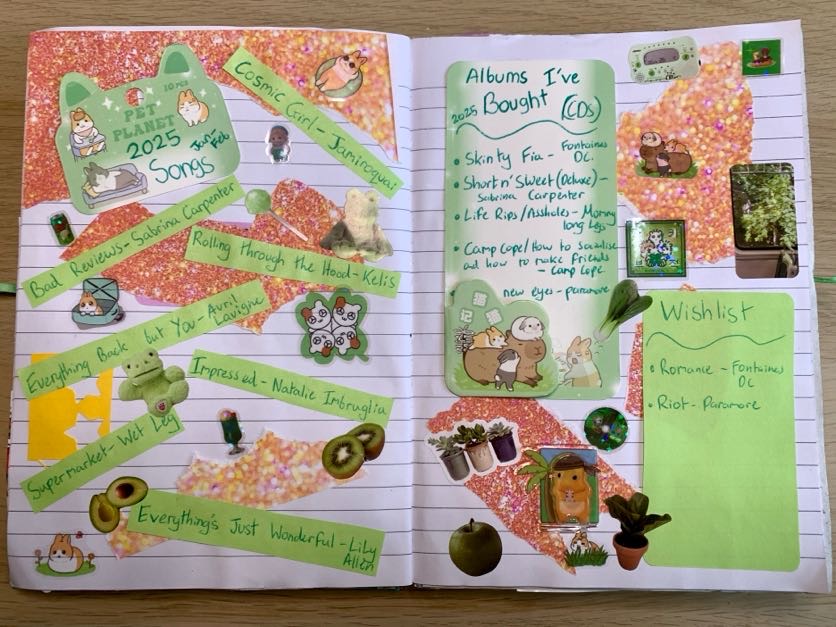 10 PCS
PET
PLANET
2025
Jan-
Feb
Songs
Cosmic Girl - Jamiroquai
Bad Reviews - Sabrina Carpenter
Rolling through the Hood - Kelis
Everything Back but You - Avril
Lavigne
Impressed - Natalie Imbruglia
Supermarket - Wet Leg
Everything's Just Wonderful - Lily
Allen
Albums I've
2025 Bought (CDs)
• Skinty Fia - Fontaines
DC.
• Short n' Sweet (Deluxe) -
Sabrina Carpenter
• Life Rips/Assholes - Mommy
long Legs
• Camp Cope/How to socialise
and how to make friends
- Camp Cope
new eyes - paramore
Wishlist
• Romance - Fontaines
DC
• Riot - Paramore